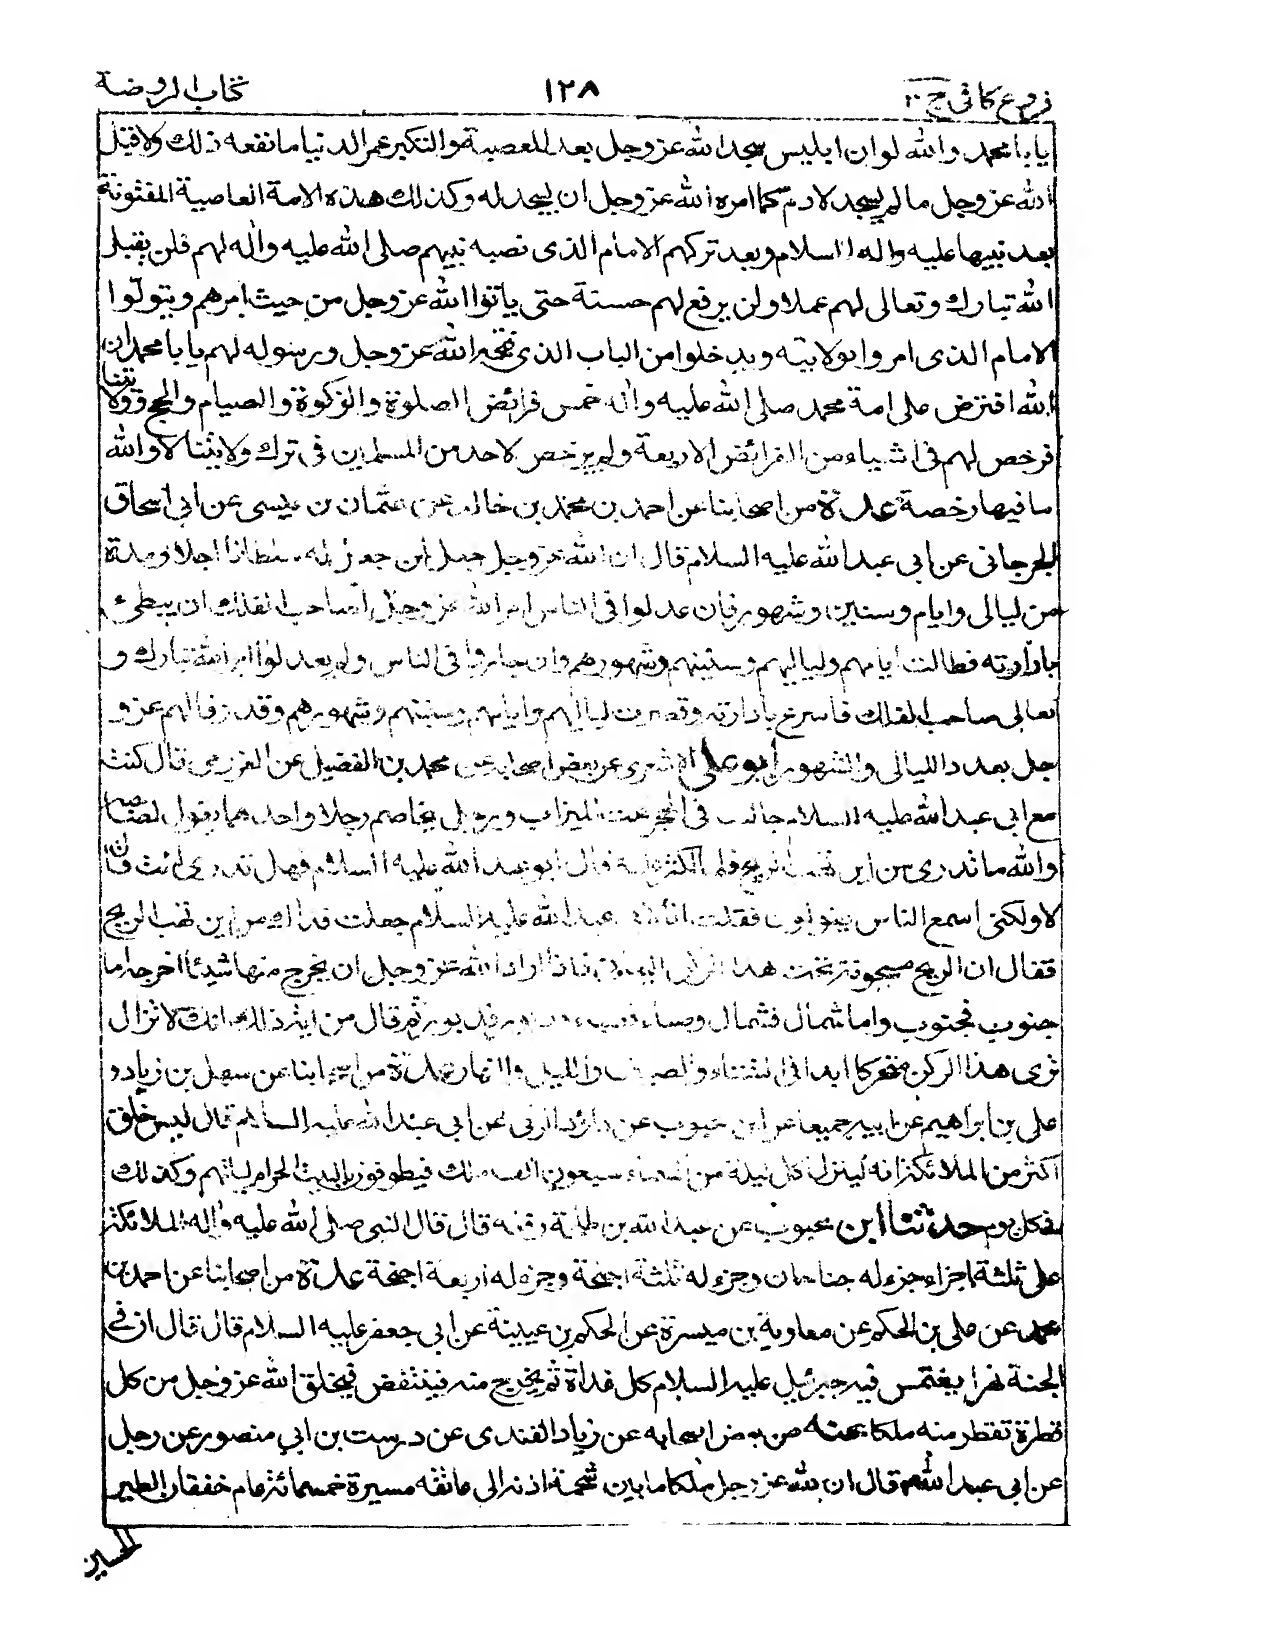 فروع كافى ج ٣ ١٢٨ كتاب الروضة
يا با محمد والله لو ان ابليس سجد الله عز وجل بعد المعصية والتكبر عمر الدنيا ما نفعه ذلك ولا قبل
الله عز وجل ما لم يسجد لادم كما امره الله عز وجل ان يسجد له وكذلك هذه الامة العاصية المفتونة
بعد نبيها عليه واله السلام وبعد تركهم الامام الذى نصبه نبيهم صلى الله عليه واله لهم فلن يقبل
الله تبارك وتعالى لهم عملا ولن يرفع لهم حسنة حتى ياتوا الله عز وجل من حيث امرهم ويتولوا
الامام الذى امروا بولايته ويدخلوا من الباب الذى فتحه الله عز وجل ورسوله لهم يا با محمد ان
الله افترض على امة محمد صلى الله عليه واله خمس فرائض الصلوة والزكوة والصيام والحج وولايتنا
فرخص لهم فى اشياء من الفرائض الاربعة ولم يرخص لاحد من المسلمين فى ترك ولايتنا لا والله
ما فيها رخصة عدة من اصحابنا عن احمد بن محمد بن خالد عن عثمان بن عيسى عن ابى اسحاق
الجرجانى عن ابى عبد الله عليه السلام قال ان الله عز وجل جعل لمن جعل له سلطانا اجلا ومدة
من ليالى وايام وسنين وشهور فان عدلوا فى الناس امر الله عز وجل صاحب الفلك ان يبطئ
بادارته فطالت ايامهم ولياليهم وسنينهم وشهورهم وان جاروا فى الناس ولم يعدلوا امر الله تبارك و
تعالى صاحب الفلك فاسرع بادارته وقصرت لياليهم وايامهم وسنينهم وشهورهم وقد وفا لهم عز و
جل بعدد الليالى والشهور ابو على الاشعرى عن بعض اصحابه عن محمد بن الفضيل عن العرزمى قال كنت
مع ابى عبد الله عليه السلام جالسا فى الحجر تحت الميزاب ورجل يخاصم رجلا واحدهما يقول لصاحبه
والله ما تدرى من اين تهب الريح فلما اكثر عليه قال ابو عبد الله عليه السلام فهل تدرى انت قال
لا ولكنى اسمع الناس يقولون فقلت انا لابى عبد الله عليه السلام جعلت فداك من اين تهب الريح
فقال ان الريح مسجونة تحت هذا الركن الشامى فاذا اراد الله عز وجل ان يخرج منها شيئا اخرجه اما
جنوب فجنوب واما شمال فشمال وصباء فصباء ودبور فدبور ثم قال من اية ذلك انك لا تزال
ترى هذا الركن متحركا ابدا فى الشتاء والصيف والليل والنهار عدة من اصحابنا عن سهل بن زياد و
على بن ابراهيم عن ابيه جميعا عن ابن محبوب عن داود الرقى عن ابى عبد الله عليه السلام قال ليس خلق
اكثر من الملائكة انه لينزل كل ليلة من السماء سبعون الف ملك فيطوفون بالبيت الحرام ليلتهم وكذلك
فى كل يوم حدثنا ابن محبوب عن عبد الله بن طلحة رفعه قال قال النبى صلى الله عليه واله الملائكة
على ثلثة اجزاء جزء له جناحان وجزء له ثلثة اجنحة وجزء له اربعة اجنحة عدة من اصحابنا عن احمد بن
محمد عن على بن الحكم عن معاوية بن ميسرة عن الحكم بن عيينة عن ابى جعفر عليه السلام قال قال ان فى
الجنة نهرا يغتمس فيه جبرئيل عليه السلام كل غداة ثم يخرج منه فينتفض فيخلق الله عز وجل من كل
قطرة تقطر منه ملكا عنه عن بعض اصحابه عن زياد القندى عن درست بن ابى منصور عن رجل
عن ابى عبد الله ع قال ان لله عز وجل ملكا ما بين شحمة اذنه الى عاتقه مسيرة خمسمائة عام خفقان الطير
الحسين